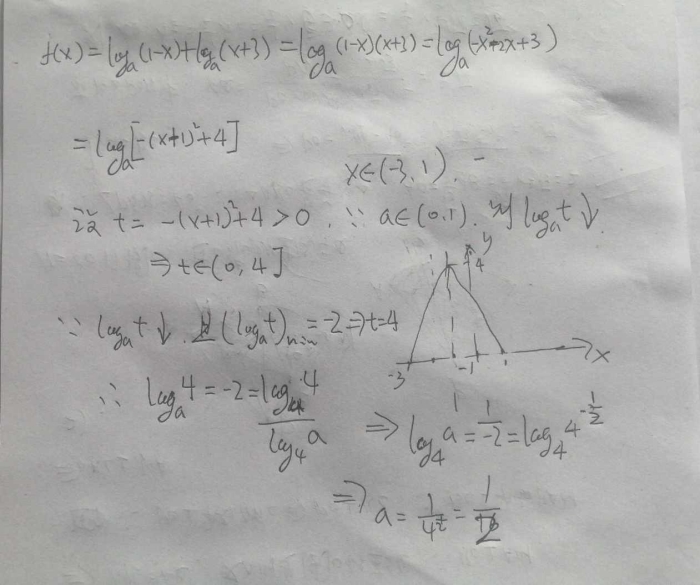 f(x)=log_a(1-x)+log_a(x+3)=log_a(1-x)(x+3)=log_a(-x²-2x+3)
=log_a[-(x+1)²+4]
x∈(-3,1).
设 t=-(x+1)²+4>0. ∵ a∈(0,1). 则 log_a t↓.
⇒t∈(0,4]
y
4
∵ log_a t↓. 且(log_a t)min=-2⇒t=4
-3 -1 1 x
∴ log_a 4=-2=log_4 4/log_4 a
⇒log_4 a=1/-2=log_4 4^{-1/2}
⇒a=1/4^{1/2}=1/2